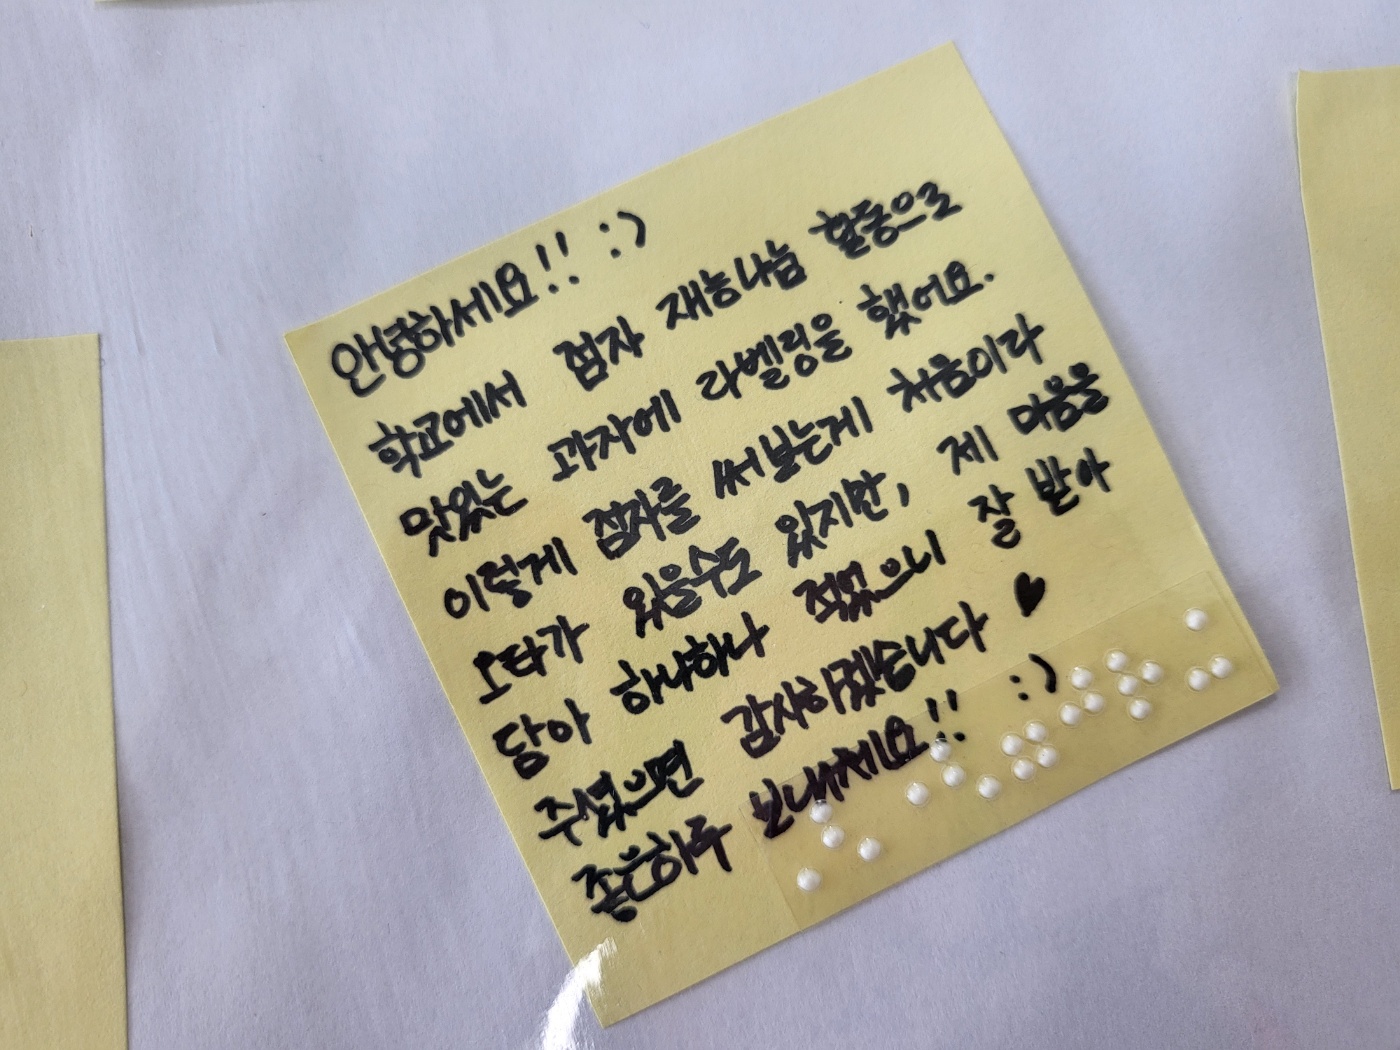 안녕하세요!! :)
학교에서 점자 재능나눔 활동으로
맛있는 과자에 라벨링을 했어요.
이렇게 점자를 써보는게 처음이라
오타가 있을수도 있지만, 제 마음을
담아 하나하나 적었으니 잘 받아
주셨으면 감사하겠습니다 ♥
좋은하루 보내세요!! :)